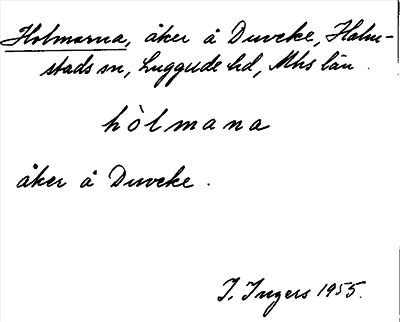 Holmarna, åker å Duveke, Halm-
stads sn, Luggude hd, Mhs län.
hòlmana
åker å Duveke.
I. Ingers 1955.